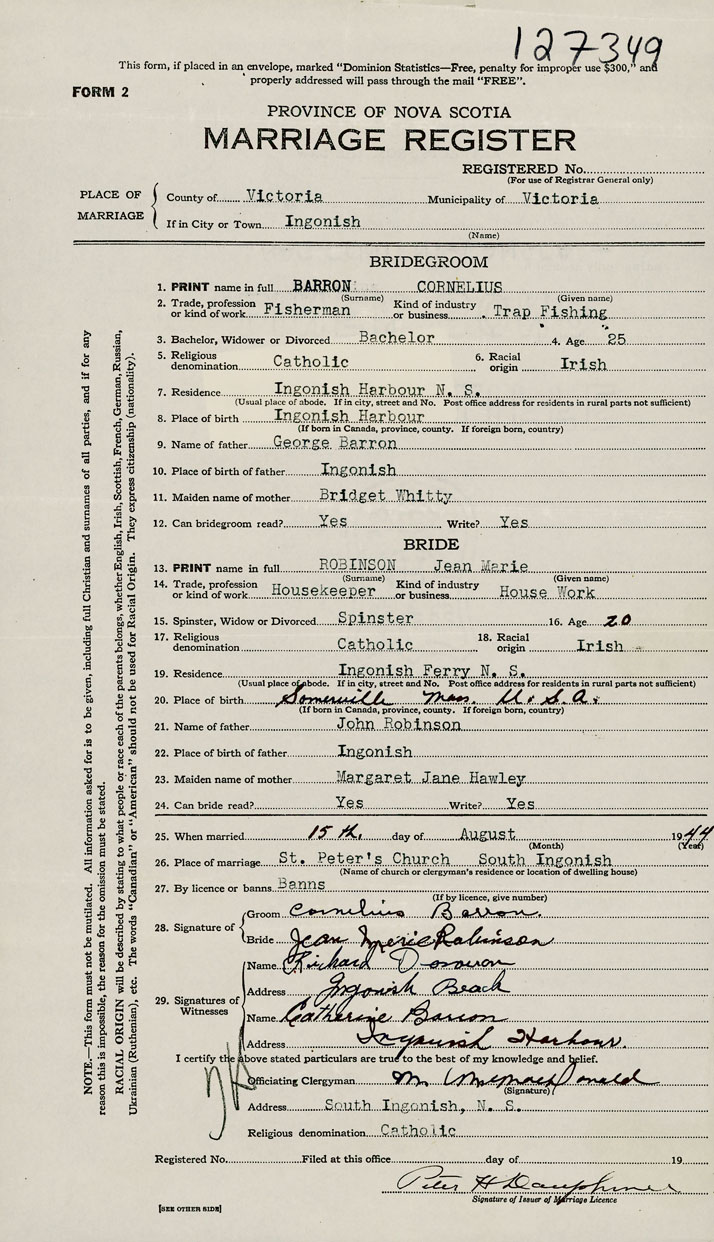 127349
This form, if placed in an envelope, marked "Dominion Statistics—Free, penalty for improper use $300," and
properly addressed will pass through the mail "FREE".
FORM 2
PROVINCE OF NOVA SCOTIA
MARRIAGE REGISTER
REGISTERED No.
(For use of Registrar General only)
PLACE OF MARRIAGE
County of Victoria Municipality of Victoria
If in City or Town Ingonish
(Name)
BRIDEGROOM
1. PRINT name in full BARRON CORNELIUS
(Surname) (Given name)
2. Trade, profession or kind of work Fisherman Kind of industry or business Trap Fishing
3. Bachelor, Widower or Divorced Bachelor 4. Age 25
5. Religious denomination Catholic 6. Racial origin Irish
7. Residence Ingonish Harbour N. S.
(Usual place of abode. If in city, street and No. Post office address for residents in rural parts not sufficient)
8. Place of birth Ingonish Harbour
(If born in Canada, province, county. If foreign born, country)
9. Name of father George Barron
10. Place of birth of father Ingonish
11. Maiden name of mother Bridget Whitty
12. Can bridegroom read? Yes Write? Yes
BRIDE
13. PRINT name in full ROBINSON Jean Marie
(Surname) (Given name)
14. Trade, profession or kind of work Housekeeper Kind of industry or business House Work
15. Spinster, Widow or Divorced Spinster 16. Age 20
17. Religious denomination Catholic 18. Racial origin Irish
19. Residence Ingonish Ferry N. S.
(Usual place of abode. If in city, street and No. Post office address for residents in rural parts not sufficient)
20. Place of birth Somerville Mass. U.S.A.
(If born in Canada, province, county. If foreign born, country)
21. Name of father John Robinson
22. Place of birth of father Ingonish
23. Maiden name of mother Margaret Jane Hawley
24. Can bride read? Yes Write? Yes
25. When married 15th, day of August 1944
(Month) (Year)
26. Place of marriage St. Peter's Church South Ingonish
(Name of church or clergyman's residence or location of dwelling house)
27. By licence or banns Banns
(If by licence, give number)
28. Signature of
Groom Cornelius Barron.
Bride Jean Marie Robinson
29. Signatures of Witnesses
Name Richard Donovan
Address Ingonish Beach
Name Catherine Barron
Address Ingonish Harbour.
I certify the above stated particulars are true to the best of my knowledge and belief.
Officiating Clergyman M. MacDonald
(Signature)
Address South Ingonish, N. S.
Religious denomination Catholic
Registered No. Filed at this office day of 19
Peter H Dauphinee
Signature of Issuer of Marriage Licence
[SEE OTHER SIDE]
NOTE.—This form must not be mutilated. All information asked for is to be given, including full Christian and surnames of all parties, and if for any
reason this is impossible, the reason for the omission must be stated.
RACIAL ORIGIN will be described by stating to what people or race each of the parents belongs, whether English, Irish, Scottish, French, German, Russian,
Ukrainian (Ruthenian), etc. The words "Canadian" or "American" should not be used for Racial Origin. They express citizenship (nationality).